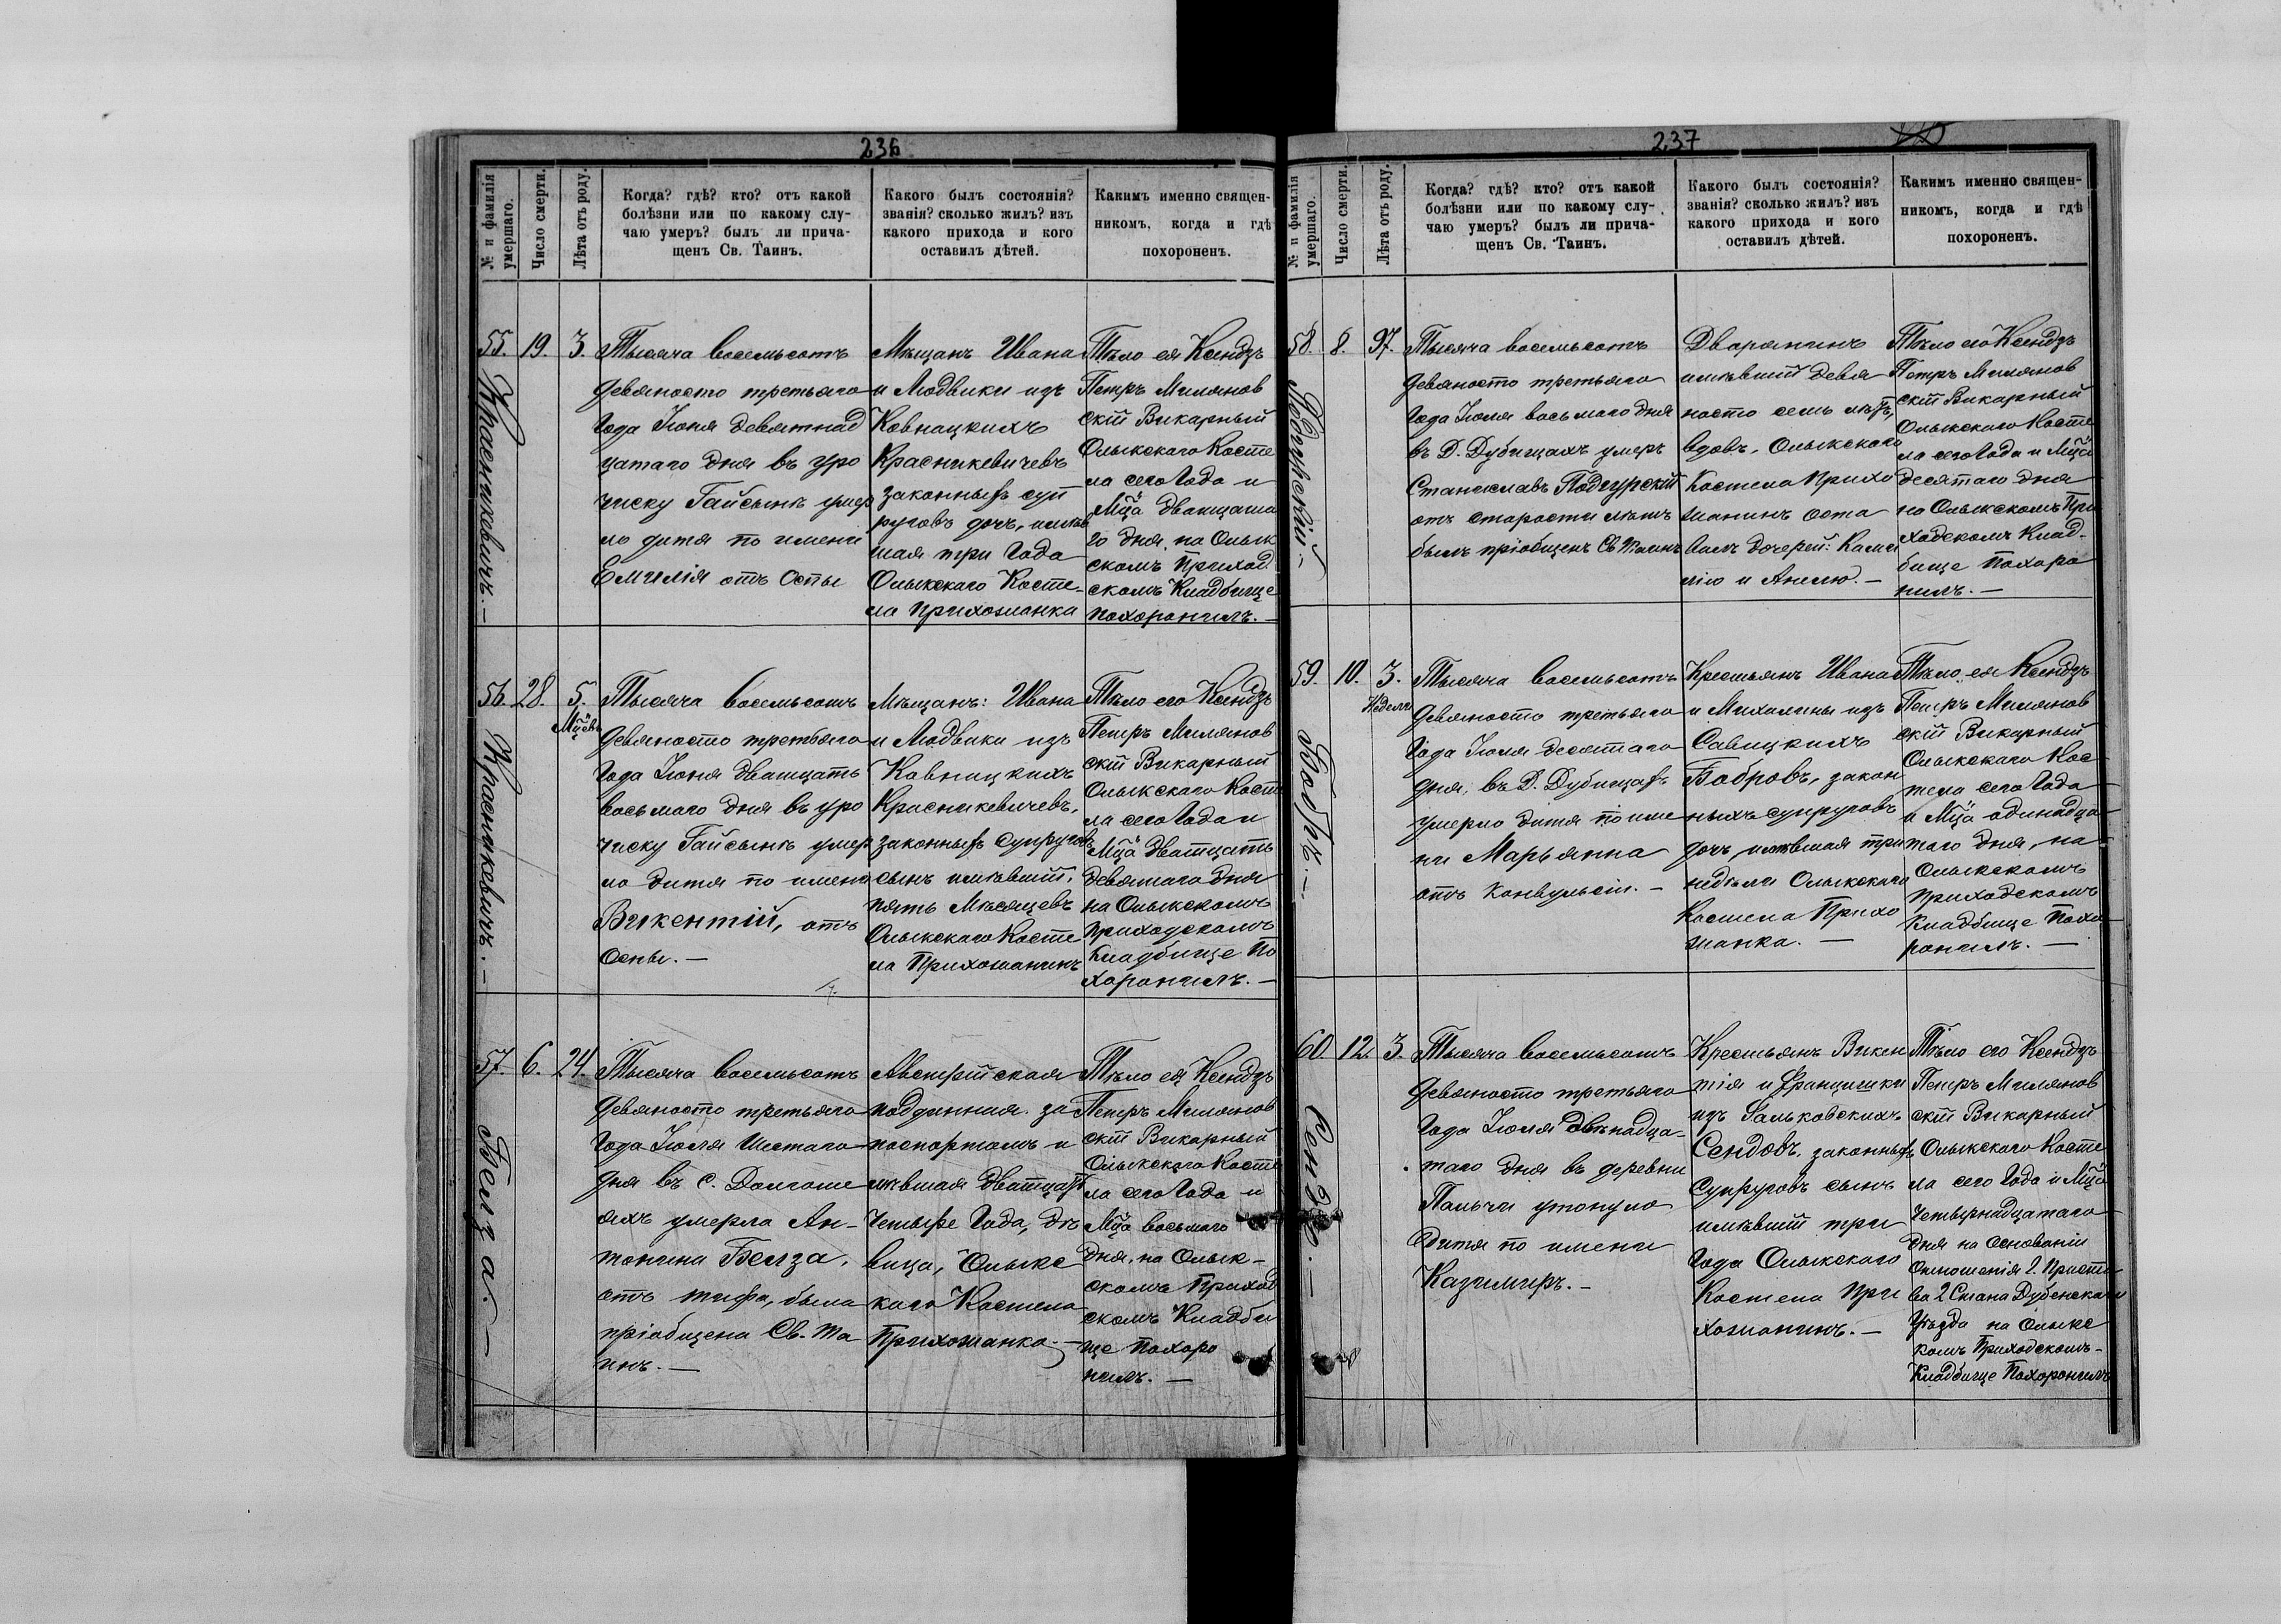 236
№ и фамилія
умершаго.
Число смерти.
Лѣта отъ роду.
Когда? гдѣ? кто? отъ какой
болѣзни или по какому слу-
чаю умеръ? былъ ли прича-
щенъ Св. Таинъ.
Какого былъ состоянія?
званія? сколько жилъ? изъ
какого прихода и кого
оставилъ дѣтей.
Какимъ именно священ-
никомъ, когда и гдѣ
похороненъ.
55.
Красникевичъ.—
19.
3.
Тысяча восемьсотъ
девяносто третьяго
Года Іюня девятнад
цатаго дня въ уро
чиску Гайсынъ умер
ло дитя по имени
Емилія отъ Оспы
Мѣщанъ Ивана
и Людвики изъ
Ковнацкихъ
Красникевичевъ
законныхъ суп
руговъ дочь, имѣв
шая три Года
Олыкскаго Косте-
ла прихожанка
Тѣло ея Ксендзъ
Петръ Милянов
скій Викарный
Олыкскаго Косте
ла сего Года и
Мца двацата
го дня, на Олык
скомъ Приход
скомъ Кладбище
похоронилъ.—
56.
Красникевичъ.—
28.
5.
Мцевъ
Тысяча восемьсотъ
девяносто третьяго
Года Іюня двацать
восьмаго дня въ уро
чиску Гайсынъ умер
ло дитя по имени
Викентій, отъ
Оспы.—
Мѣщанъ: Ивана
и Людвики изъ
Ковницкихъ
Красникевичевъ,
законныхъ супруговъ,
сынъ имѣвшій,
пять Мѣсяцевъ
Олыкскаго Косте
ла Прихожанинъ
Тѣло его Ксендзъ
Петръ Милянов
скій Викарный
Олыкскаго Косте
ла сего Года и
Мца дватцать
девятаго дня
на Олыкскомъ
приходскомъ
Кладбище по
хоронилъ.—
57.
Белза.—
6.
24.
Тысяча восемьсотъ
девяносто третьяго
Года Іюля Шестаго
дня въ с. Долгоше
яхъ умерла Ан-
тонина Белза,
отъ тифа, была
пріобщена Св. Та
инъ.—
Австрійская
подданная за
паспортомъ и
мѣвшая дватцать
Четыре Года, дѣ
вица, Олыкс
каго Костела
Прихожанка.—
Тѣло ея Ксендзъ
Петръ Милянов
скій Викарный
Олыкскаго Косте
ла сего Года и
Мца восьмаго
дня, на Олык-
скомъ Приход
скомъ Кладби
ще похоро
нилъ.—
237
№ и фамилія
умершаго.
Число смерти.
Лѣта отъ роду.
Когда? гдѣ? кто? отъ какой
болѣзни или по какому слу-
чаю умеръ? былъ ли прича-
щенъ Св. Таинъ.
Какого былъ состоянія?
званія? сколько жилъ? изъ
какого прихода и кого
оставилъ дѣтей.
Какимъ именно священ-
никомъ, когда и гдѣ
похороненъ.
58.
Подгурскій.—
8.
97.
Тысяча восемьсотъ
девяносто третьяго
Года Іюля восьмаго дня
въ Д. Дубищахъ умеръ
Станиславъ Подгурскій
отъ старости лѣтъ
былъ пріобщенъ Св Таинъ
Дворянинъ
имѣвшій девя
носто семь лѣтъ,
вдовъ, Олыкскаго
Костела Прихо
жанинъ оста
вилъ дочерей: Ками
лію и Анелю.—
Тѣло его Ксендзъ
Петръ Милянов
скій Викарный
Олыкскаго Косте
ла сего Года и Мца
десятаго дня
на Олыкскомъ При
ходскомъ Клад-
бище похоро
нилъ.—
59.
Бобръ.—
10.
3.
Недели
Тысяча восемьсотъ
девяносто третьяго
Года Іюля десятаго
дня, въ Д. Дубищахъ
умерло дитя по име
ни Марьянна
отъ конвульсіи.—
Крестьянъ Ивана
и Михалины изъ
Савицкихъ
Бобровъ, закон
ныхъ супруговъ
дочь, имѣвшая три
недѣли Олыкскаго
Костела Прихо
жанка.—
Тѣло ея Ксендзъ
Петръ Милянов
скій Викарный
Олыкскаго Кос-
тела сего Года
и Мца одинадца
таго дня, на
Олыкскомъ
приходскомъ
Кладбище Похо
ронилъ.—
60
12.
3.
Тысяча восемьсотъ
девяносто третьяго
Года Іюля двѣнадца-
таго дня въ деревни
Пальчи утонуло
дитя по имени
Казимиръ.—
Крестьянъ Викен
тія и Францишки
изъ Гальковскихъ
Сендовъ, законныхъ
Супруговъ сынъ
имѣвшій три
Года Олыкскаго
Костела При
хожанинъ.—
Тѣло его Ксендзъ
Петръ Милянов
скій Викарный
Олыкскаго Косте
ла сего Года и Мца
Четырнадцатаго
дня на Основаніи
Отношенія Г. Приста
ва 2 Стана Дубенскаго
Уѣзда на Олыкс
комъ Приходскомъ-
Кладбище Похоронилъ